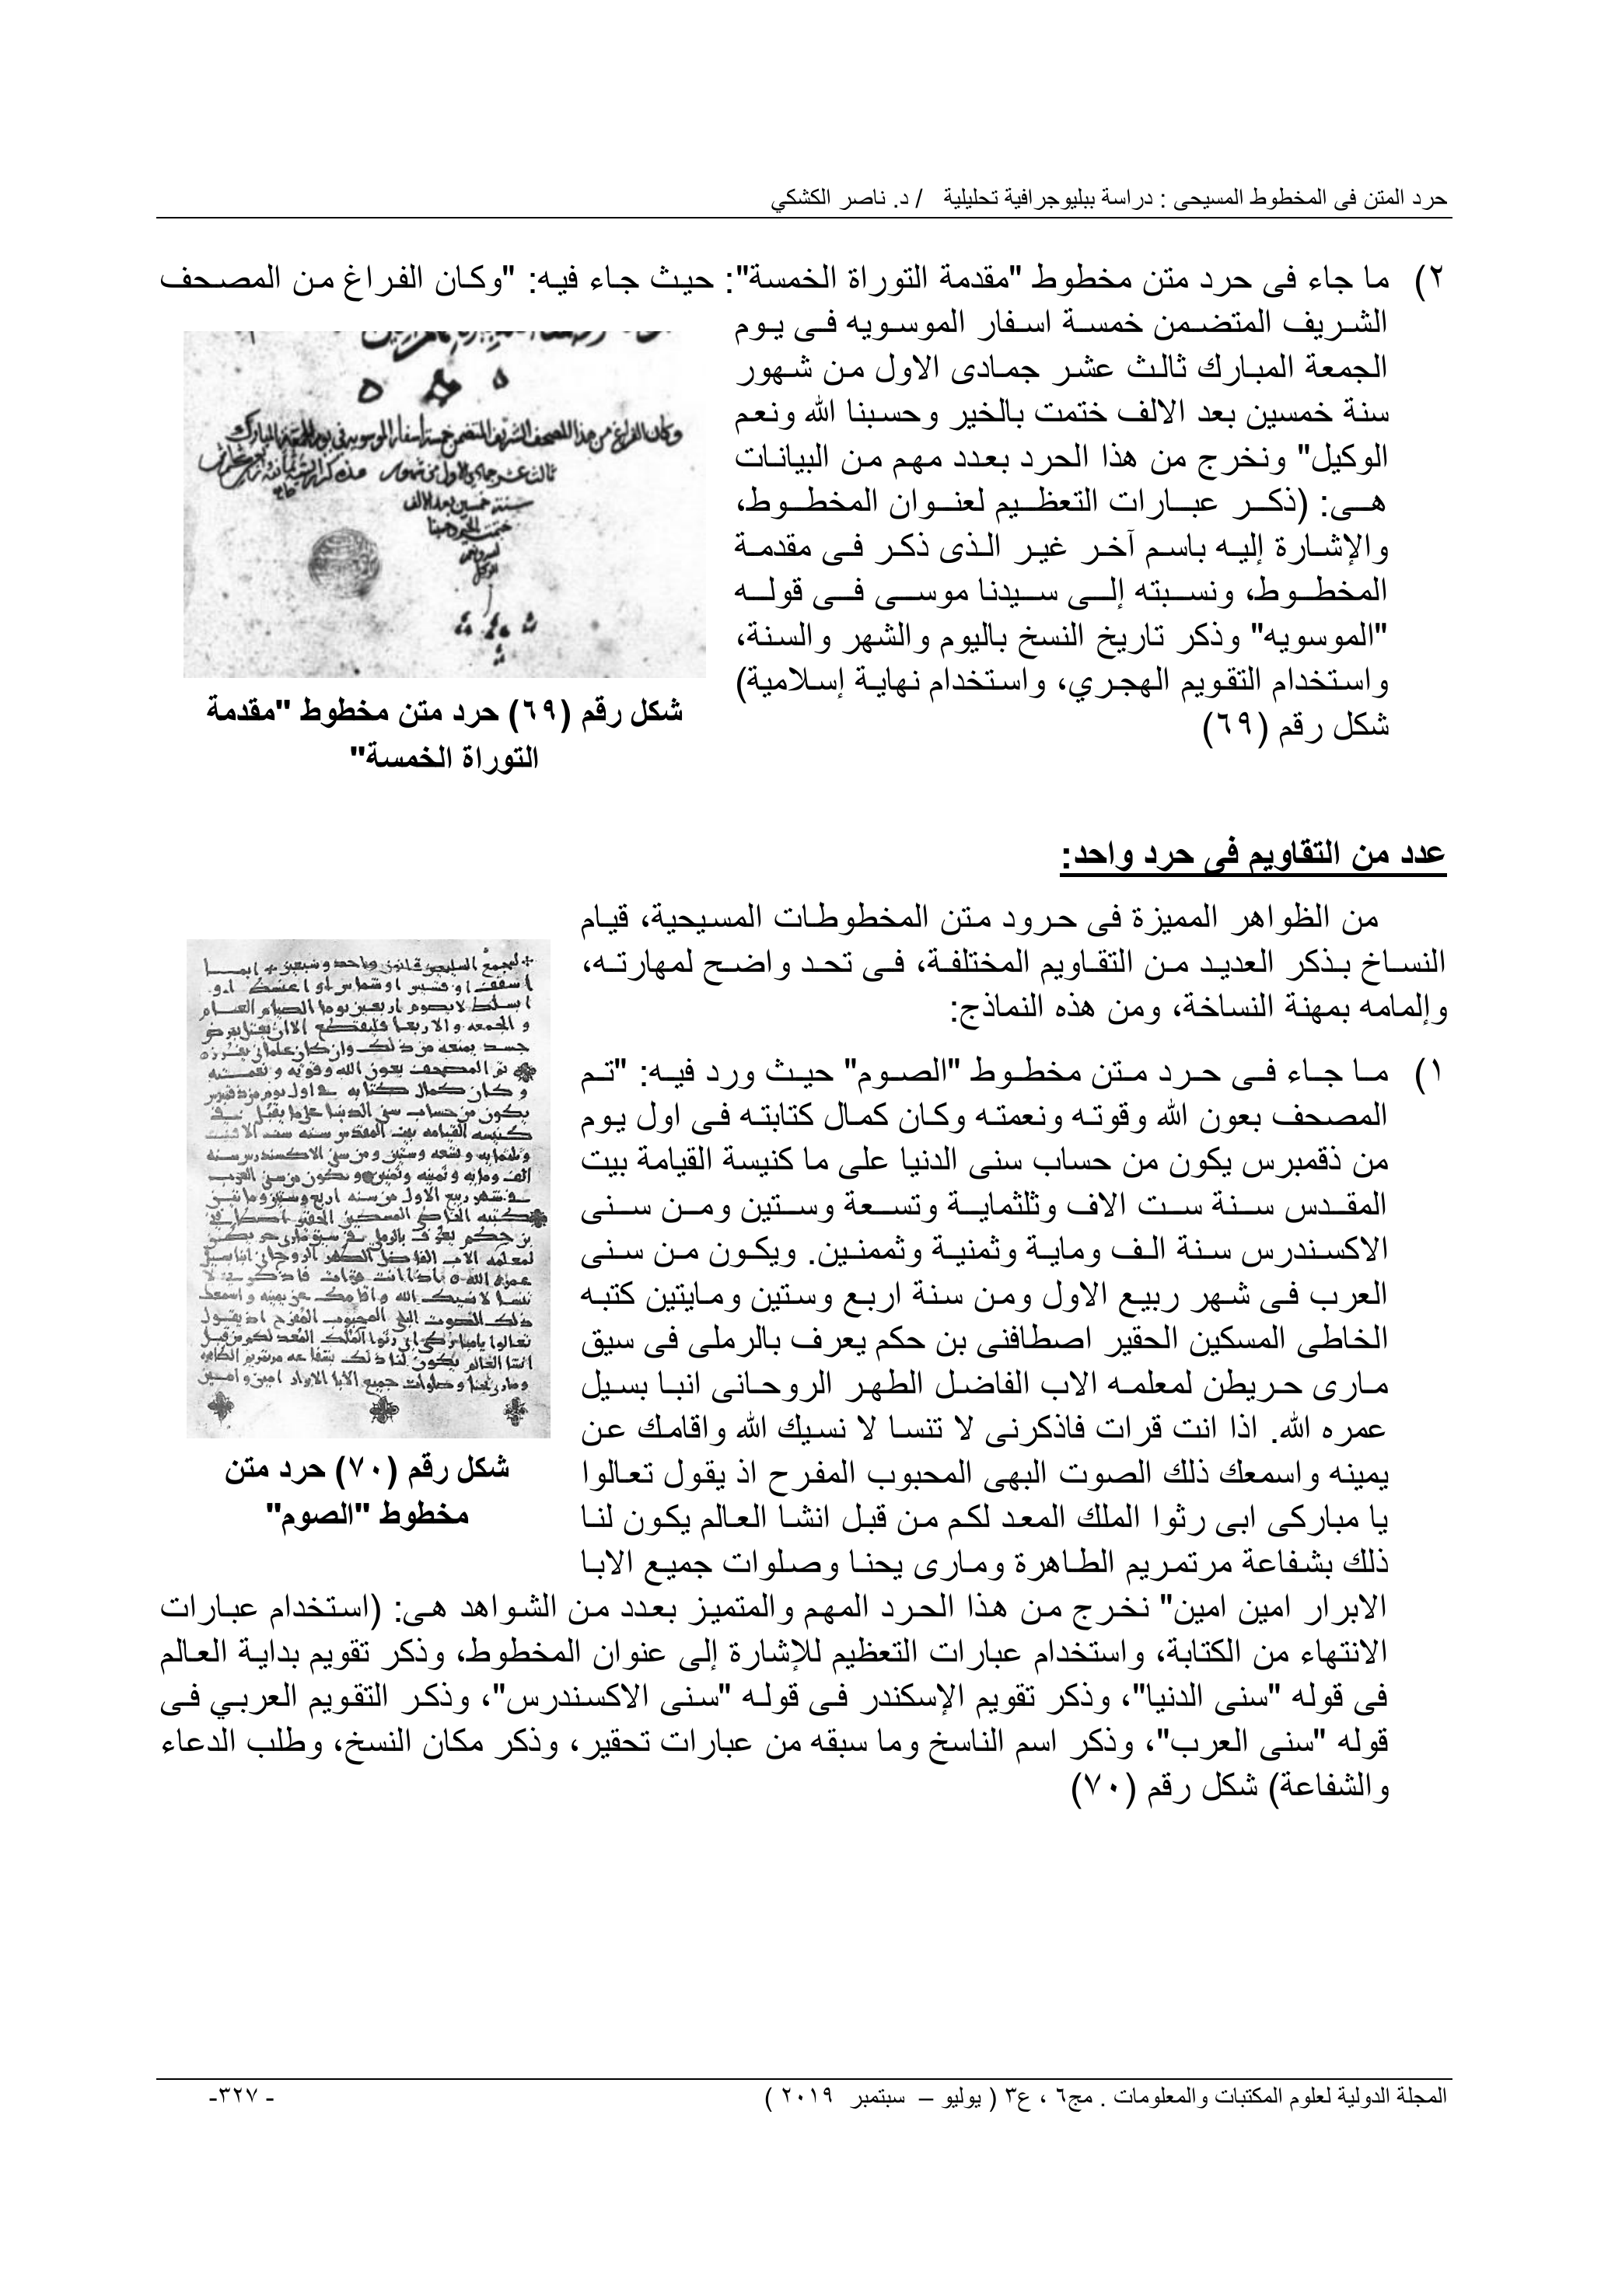 حرد المتن فى المخطوط المسيحى : دراسة ببليوجرافية تحليلية / د. ناصر الكشكي
٢) ما جاء فى حرد متن مخطوط "مقدمة التوراة الخمسة": حيث جاء فيه: "وكان الفراغ من المصحف
الشريف المتضمن خمسة اسفار الموسويه فى يوم
الجمعة المبارك ثالث عشر جمادى الاول من شهور
سنة خمسين بعد الالف ختمت بالخير وحسبنا الله ونعم
الوكيل" ونخرج من هذا الحرد بعدد مهم من البيانات
هى: (ذكر عبارات التعظيم لعنوان المخطوط،
والإشارة إليه باسم آخر غير الذى ذكر فى مقدمة
المخطوط، ونسبته إلى سيدنا موسى فى قوله
"الموسويه" وذكر تاريخ النسخ باليوم والشهر والسنة،
واستخدام التقويم الهجري، واستخدام نهاية إسلامية)
شكل رقم (٦٩)
وكان الفراغ من هذا المصحف الشريف المتضمن خمسة اسفار الموسويه فى يوم الجمعة المبارك
ثالث عشر جمادى الاول من شهور
سنة خمسين بعد الالف
شكل رقم (٦٩) حرد متن مخطوط "مقدمة
التوراة الخمسة"
عدد من التقاويم فى حرد واحد:
من الظواهر المميزة فى حرود متن المخطوطات المسيحية، قيام
النساخ بذكر العديد من التقاويم المختلفة، فى تحد واضح لمهارته،
وإلمامه بمهنة النساخة، ومن هذه النماذج:
١) ما جاء فى حرد متن مخطوط "الصوم" حيث ورد فيه: "تم
المصحف بعون الله وقوته ونعمته وكان كمال كتابته فى اول يوم
من ذقمبرس يكون من حساب سنى الدنيا على ما كنيسة القيامة بيت
المقدس سنة ست الاف وثلثماية وتسعة وستين ومن سنى
الاكسندرس سنة الف وماية وثمنية وثممنين. ويكون من سنى
العرب فى شهر ربيع الاول ومن سنة اربع وستين ومايتين كتبه
الخاطى المسكين الحقير اصطافنى بن حكم يعرف بالرملى فى سيق
مارى حريطن لمعلمه الاب الفاضل الطهر الروحانى انبا بسيل
عمره الله. اذا انت قرات فاذكرنى لا تنسا لا نسيك الله واقامك عن
يمينه واسمعك ذلك الصوت البهى المحبوب المفرح اذ يقول تعالوا
يا مباركى ابى رثوا الملك المعد لكم من قبل انشا العالم يكون لنا
ذلك بشفاعة مرتمريم الطاهرة ومارى يحنا وصلوات جميع الابا
الابرار امين امين" نخرج من هذا الحرد المهم والمتميز بعدد من الشواهد هى: (استخدام عبارات
الانتهاء من الكتابة، واستخدام عبارات التعظيم للإشارة إلى عنوان المخطوط، وذكر تقويم بداية العالم
فى قوله "سنى الدنيا"، وذكر تقويم الإسكندر فى قوله "سنى الاكسندرس"، وذكر التقويم العربي فى
قوله "سنى العرب"، وذكر اسم الناسخ وما سبقه من عبارات تحقير، وذكر مكان النسخ، وطلب الدعاء
والشفاعة) شكل رقم (٧٠)
شكل رقم (٧٠) حرد متن
مخطوط "الصوم"
المجلة الدولية لعلوم المكتبات والمعلومات . مج٦ ، ع٣ ( يوليو – سبتمبر ٢٠١٩ )
- ٣٢٧-